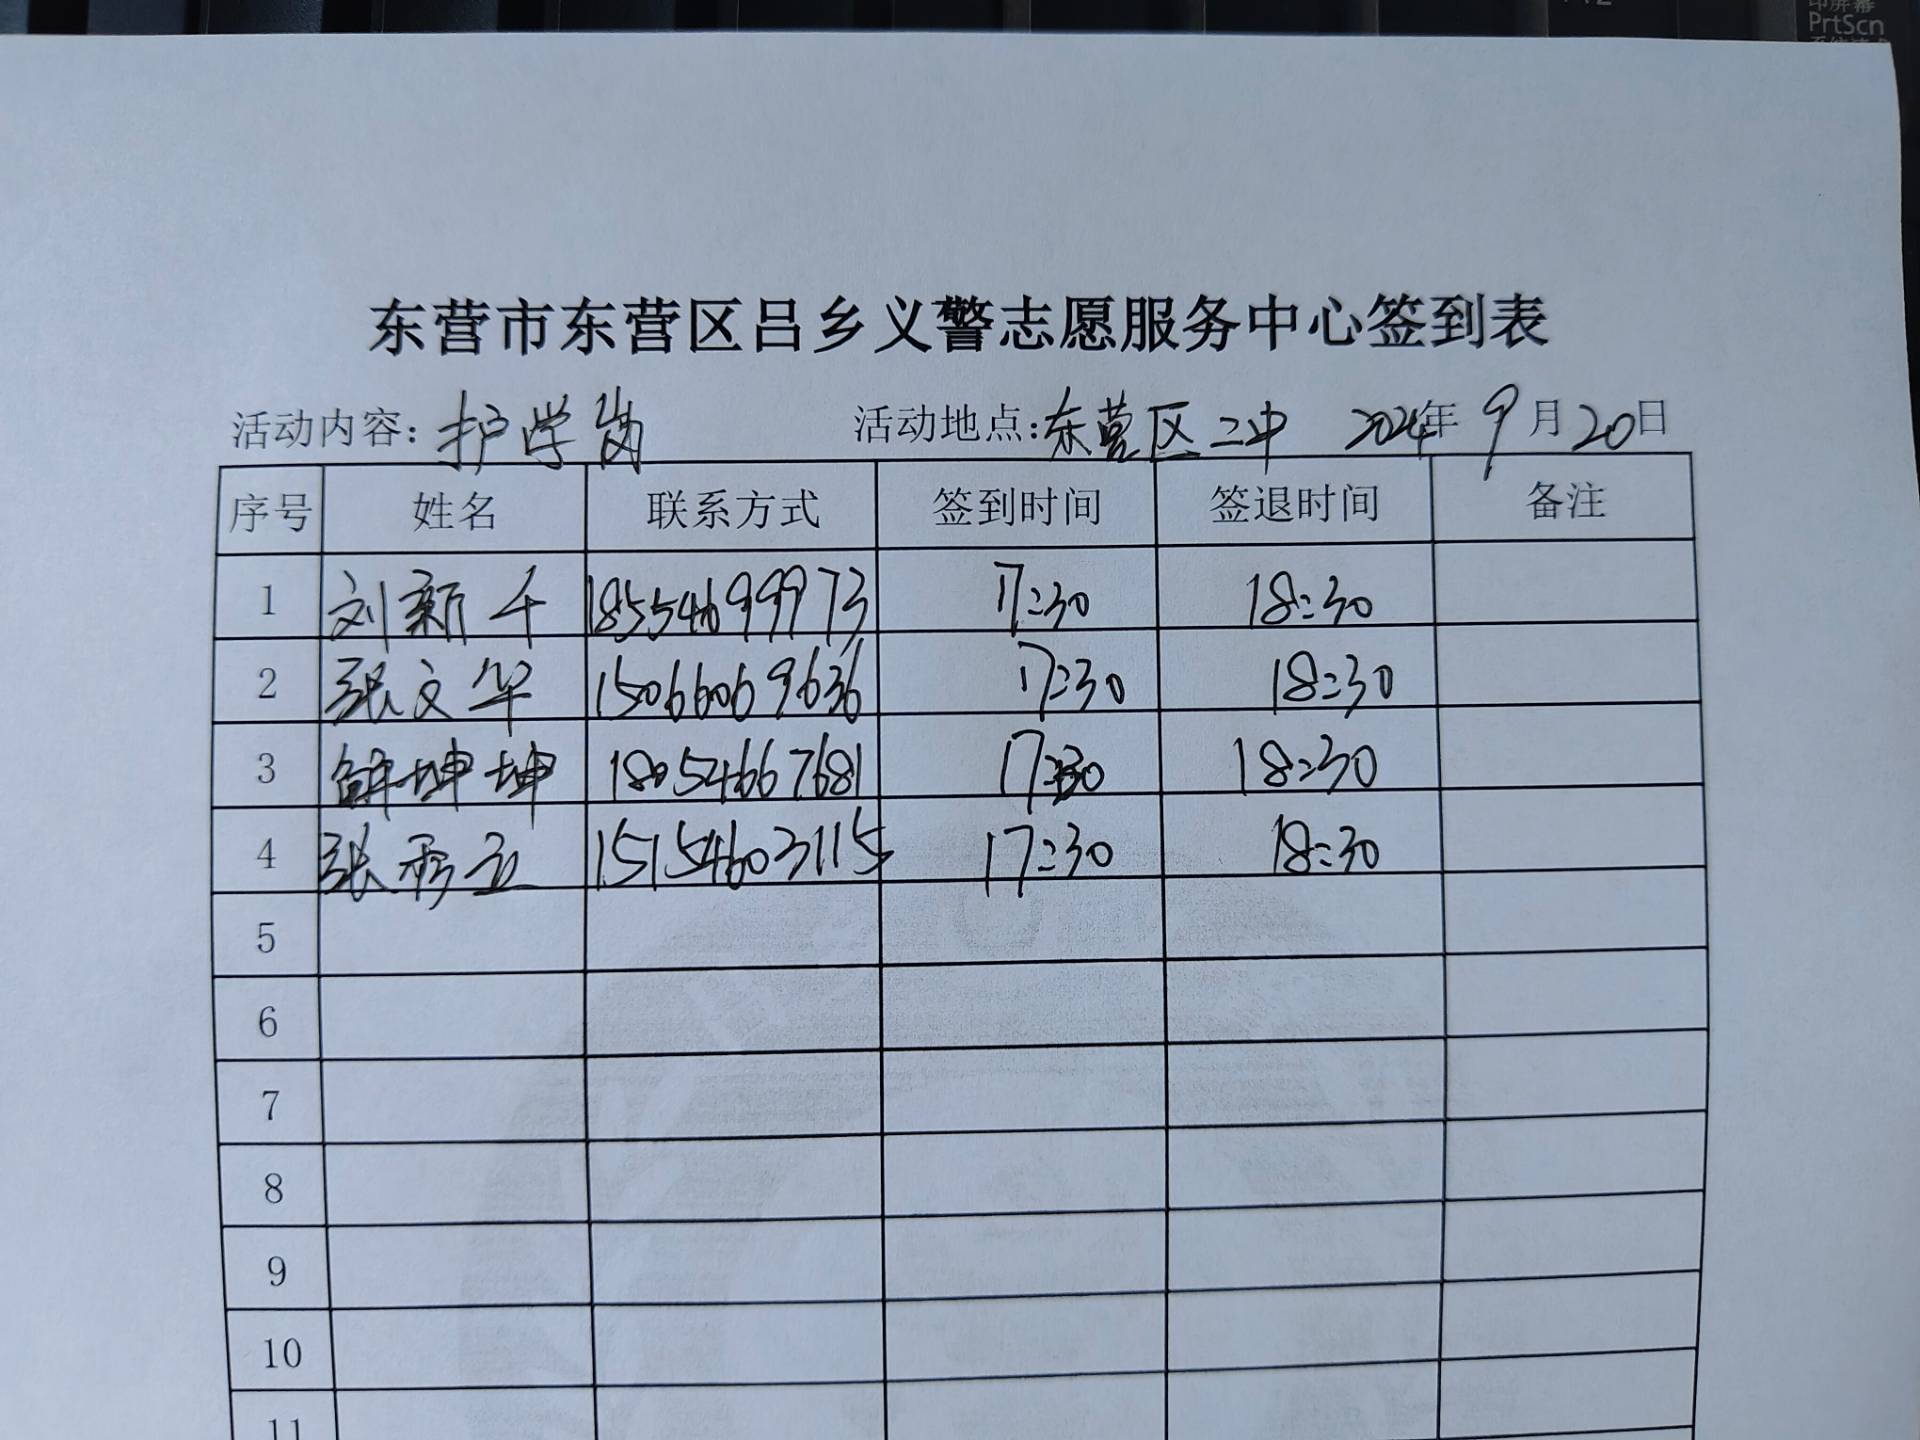 印屏幕
PrtScn
东营市东营区吕乡义警志愿服务中心签到表
活动内容：护学岗 活动地点：东营区二中 2024年 9月20日
序号 姓名 联系方式 签到时间 签退时间 备注
1 刘新千 18554699973 17:30 18:30
2 张文华 15066069636 17:30 18:30
3 坤坤 18054667681 17:30 18:30
4 张秀立 15154603115 17:30 18:30
5
6
7
8
9
10
11